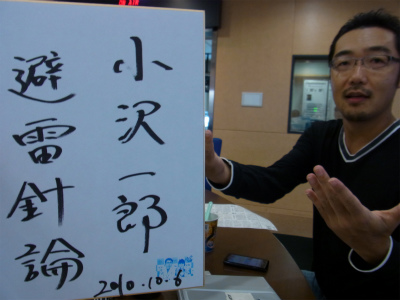 小沢一郎
避雷針論
2010.10.6